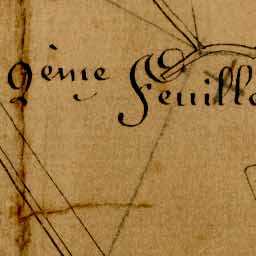 9ème Feuille